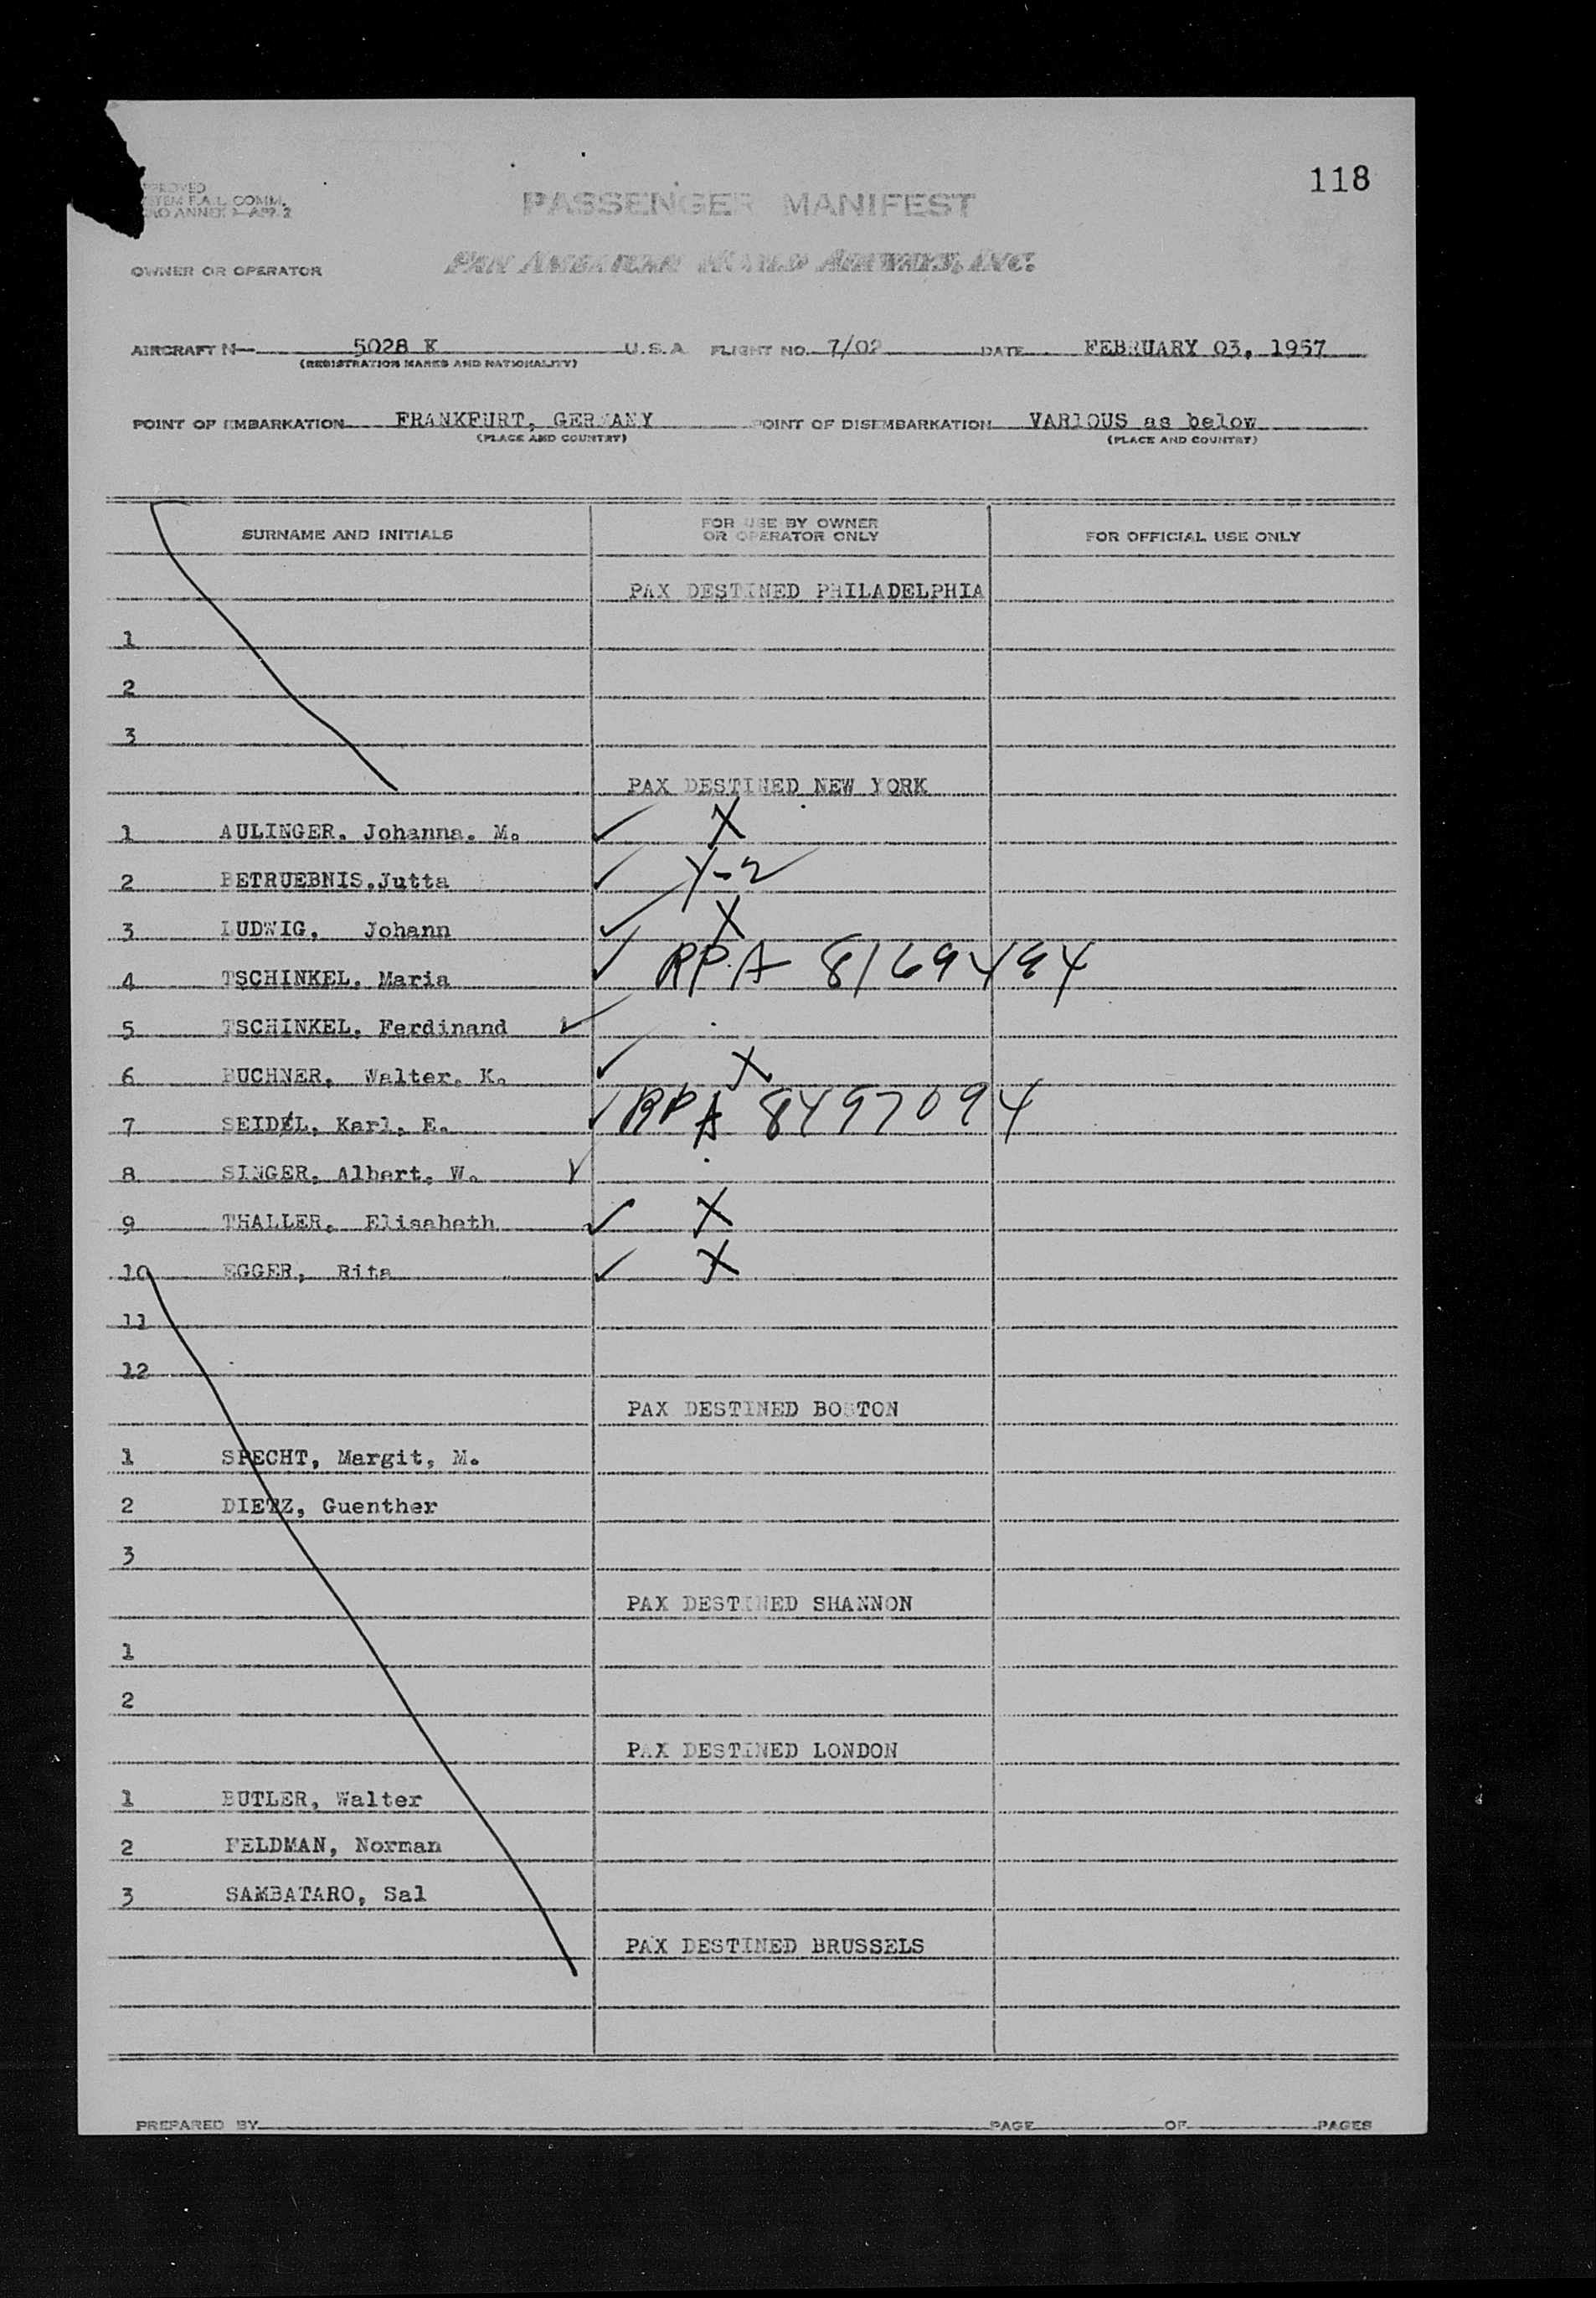 118
PROVED
STEM F.A.L. COMM.
ANNEX 9-APP. 2
PASSENGER MANIFEST
OWNER OR OPERATOR PAN AMERICAN WORLD AIRWAYS, INC.
AIRCRAFT N- 5028 K U.S.A. FLIGHT NO. 7/02 DATE FEBRUARY 03, 1957
(REGISTRATION MARKS AND NATIONALITY)
POINT OF EMBARKATION FRANKFURT, GERMANY POINT OF DISEMBARKATION VAR1OUS as below
(PLACE AND COUNTRY) (PLACE AND COUNTRY)
SURNAME AND INITIALS FOR USE BY OWNER OR OPERATOR ONLY FOR OFFICIAL USE ONLY
PAX DESTINED PHILADELPHIA
1
2
3
PAX DESTINED NEW YORK
1 AULINGER. Johanna. M. ✓ X
2 BETRUEBNIS.Jutta ✓ Y-2
3 LUDWIG, Johann ✓ X
4 TSCHINKEL, Maria ✓ RPA 8169494
5 TSCHINKEL, Ferdinand ✓
6 BUCHNER, Walter. K. ✓ X
7 SEIDEL, Karl, E. ✓ RPA 8497094
8 SINGER, Albert, W. ✓
9 THALLER, Elisabeth ✓ X
10 EGGER, Rita ✓ X
11
12
PAX DESTINED BOSTON
1 SPECHT, Margit, M.
2 DIETZ, Guenther
3
PAX DESTINED SHANNON
1
2
PAX DESTINED LONDON
1 BUTLER, Walter
2 FELDMAN, Norman
3 SAMBATARO, Sal
PAX DESTINED BRUSSELS
PREPARED BY PAGE OF PAGES